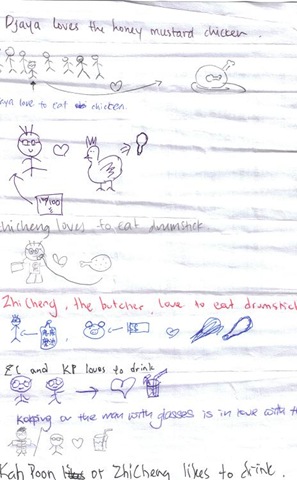 Djaya loves the honey mustard chicken.
aya love to eat chicken.
100
zhicheng loves to eat drumstick
Zhi Cheng, the butcher, love to eat drumstick
EC and KP loves to drink
or the man with glasses is in love with th
Kah Poon or ZhiCheng likes to drink.